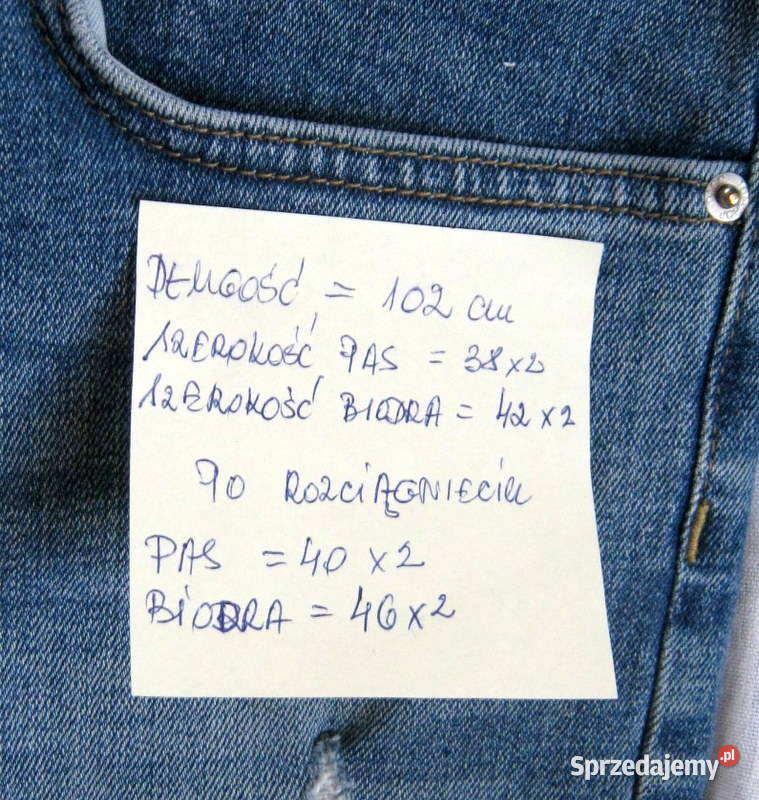 DŁUGOŚĆ = 102 cm
SZEROKOŚĆ PAS = 38x2
SZEROKOŚĆ BIODRA = 42x2
PO ROZCIĄGNIĘCIU
PAS = 40 x 2
BIODRA = 46x2
Sprzedajemy.pl